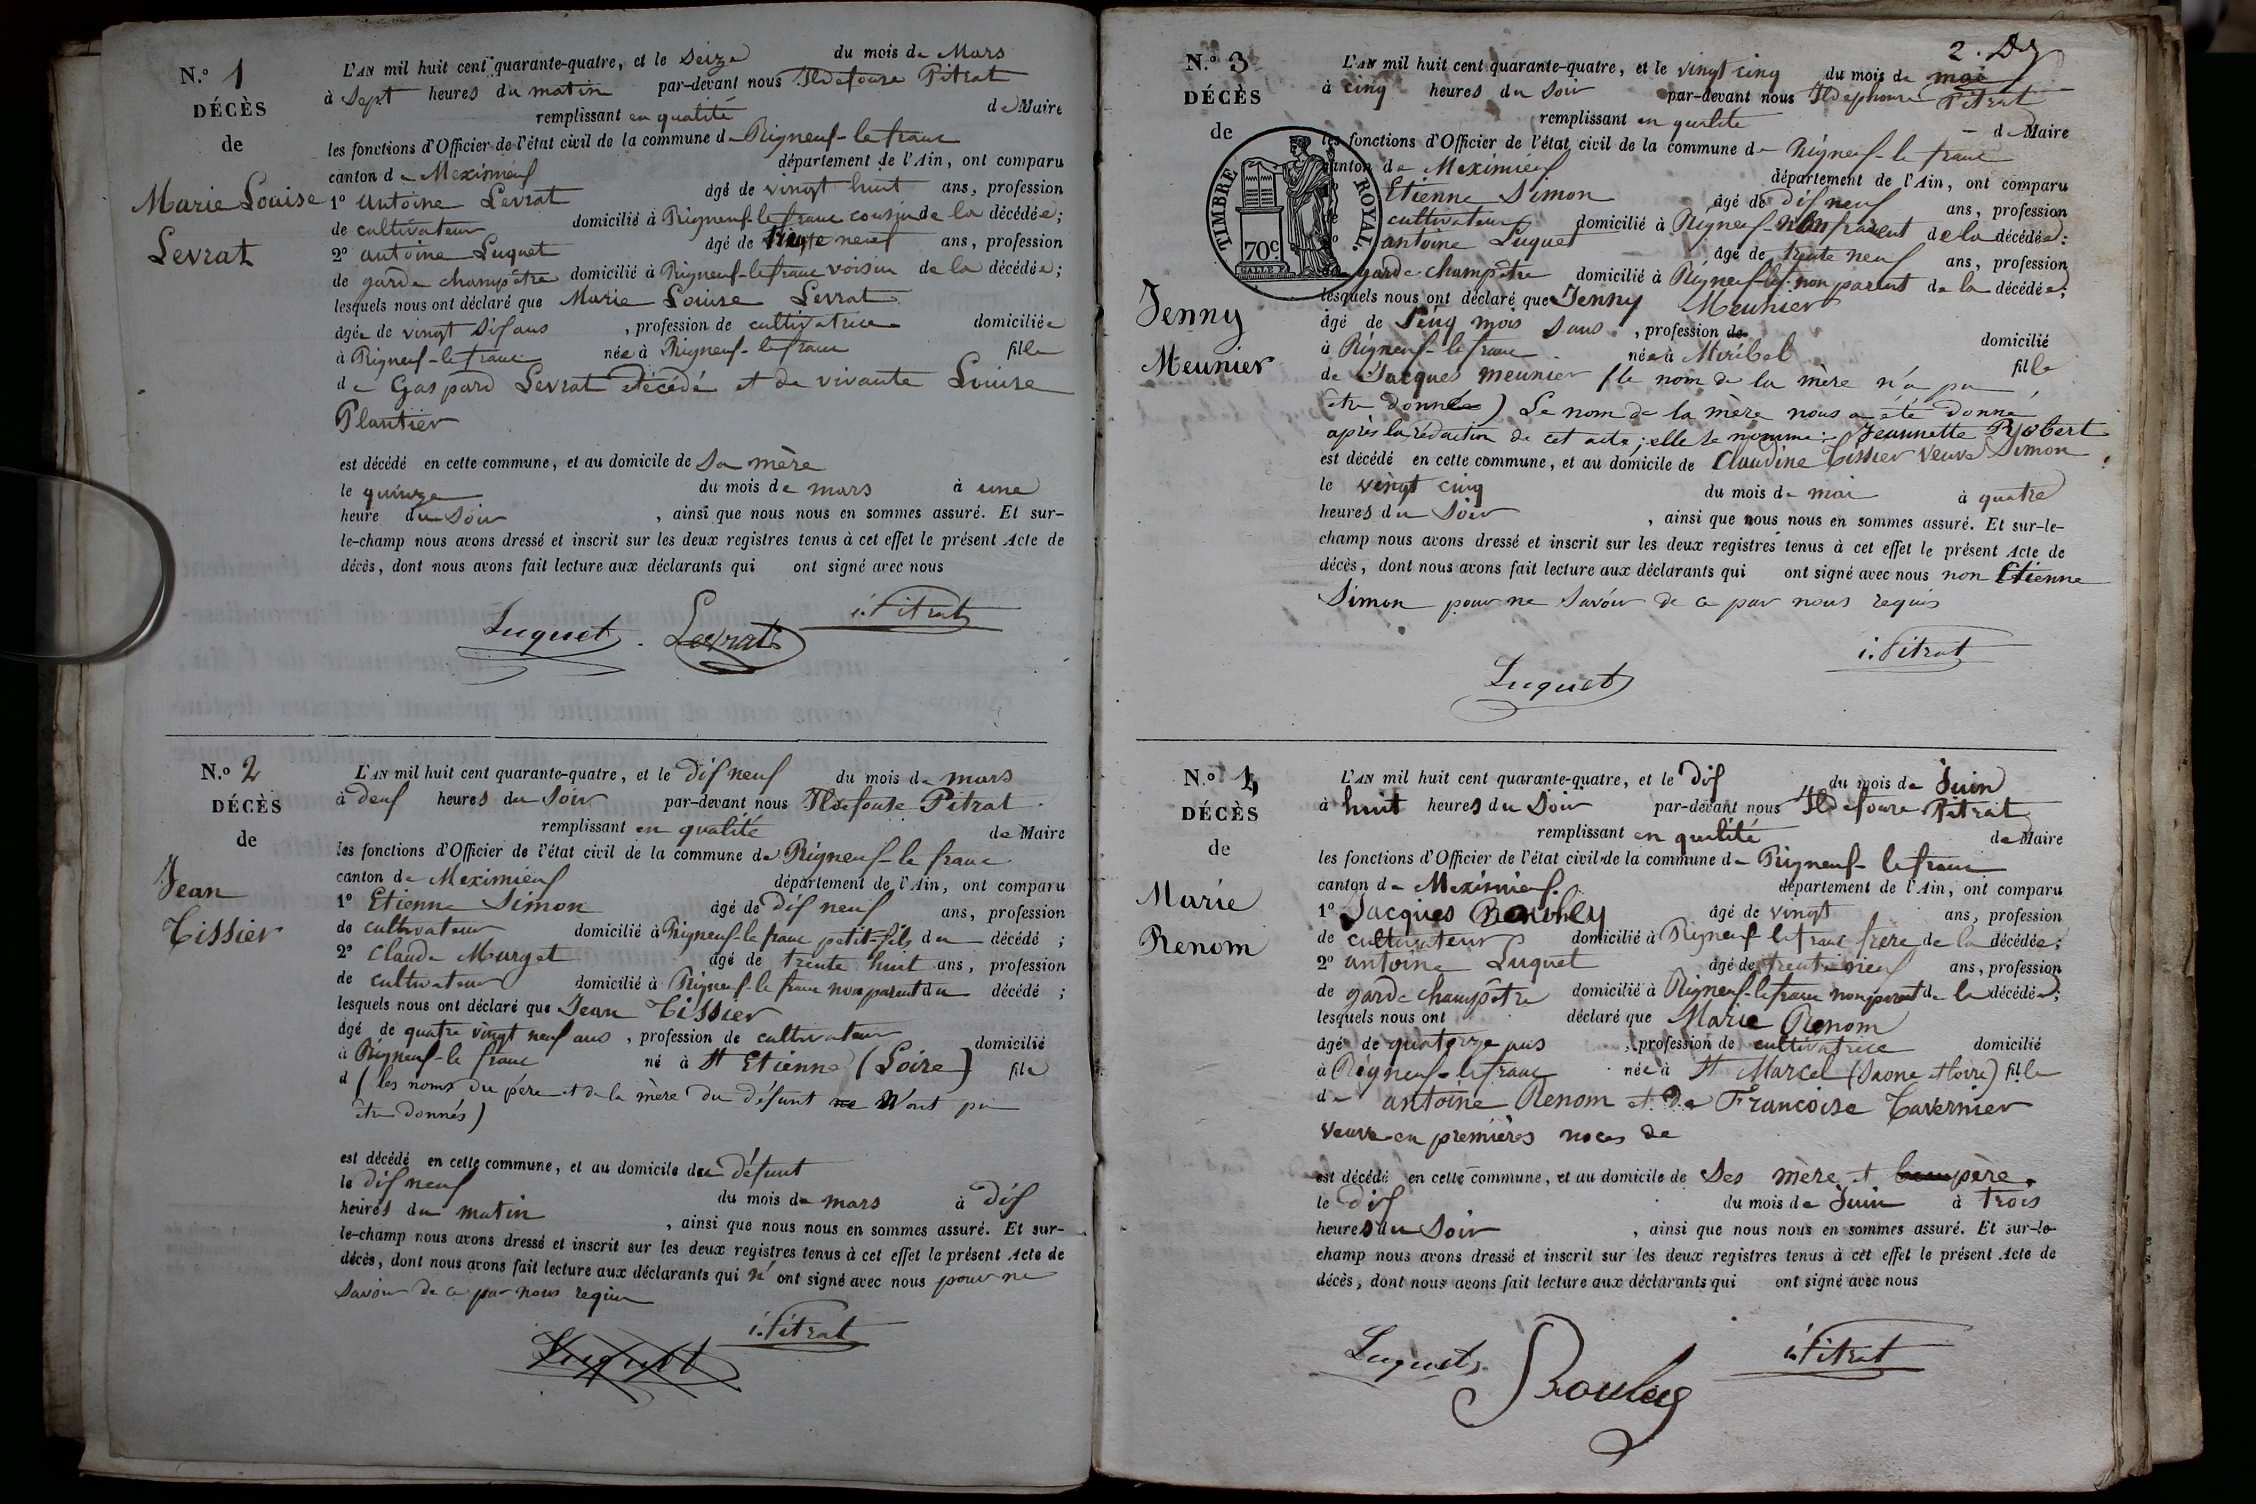 N.º 1
DÉCÈS
de
Marie Louise
Levrat
L'AN mil huit cent quarante-quatre, et le Seize du mois de Mars
à Sept heures du matin par-devant nous Ildefonse Pitrat
remplissant en qualité de Maire
les fonctions d'Officier de l'état civil de la commune de Rigneuf-le franc
canton de Meximieuf département de l'Ain, ont comparu
1º antoine Levrat âgé de vingt huit ans, profession
de cultivateur domicilié à Rigneuf-le franc cousin de la décédée;
2º antoine Luquet âgé de trente neuf ans, profession
de garde champêtre domicilié à Rigneuf-le franc voisin de la décédée;
lesquels nous ont déclaré que Marie Louise Levrat
âgée de vingt Sif ans, profession de cultivatrice domiciliée
à Rigneuf-le franc née à Rigneuf-le franc fille
de Gaspard Levrat décédé et de vivante Louise
Plantier
est décédé en cette commune, et au domicile de Sa mère
le quinze du mois de mars à une
heure du Soir, ainsi que nous nous en sommes assuré. Et sur-
le-champ nous avons dressé et inscrit sur les deux registres tenus à cet effet le présent Acte de
décès, dont nous avons fait lecture aux déclarants qui ont signé avec nous
i. Pitrat
Luquet Levrat
N.º 2
DÉCÈS
de
Jean
Tissier
L'AN mil huit cent quarante-quatre, et le Dif neuf du mois de mars
à deuf heures du Soir par-devant nous Ildefonse Pitrat
remplissant en qualité de Maire
les fonctions d'Officier de l'état civil de la commune de Rigneuf-le franc
canton de Meximieuf département de l'Ain, ont comparu
1º Etienne Simon âgé de Dif neuf ans, profession
de cultivateur domicilié à Rigneuf-le franc petit-fils du décédé;
2º Claude Murget âgé de trente huit ans, profession
de cultivateur domicilié à Rigneuf-le franc non parent du décédé;
lesquels nous ont déclaré que Jean Tissier
âgé de quatre vingt neuf ans, profession de cultivateur domicilié
à Rigneuf-le franc né à St Etienne (Loire) fils
d (les noms du père et de la mère du défunt ne N'ont pu
être donnés)
est décédé en cette commune, et au domicile du défunt
le dif neuf du mois de mars à Dif
heures du matin, ainsi que nous nous en sommes assuré. Et sur-
le-champ nous avons dressé et inscrit sur les deux registres tenus à cet effet le présent Acte de
décès, dont nous avons fait lecture aux déclarants qui n' ont signé avec nous pour ne
Savoir de ce par nous requis
i. Pitrat
Luquet
2.
N.º 3
DÉCÈS
de
Jenny
Meunier
TIMBRE ROYAL.
70c.
L'AN mil huit cent quarante-quatre, et le vingt cinq du mois de mai
à cinq heures du Soir par-devant nous Ildephonse Pitrat
remplissant en qualité de Maire
les fonctions d'Officier de l'état civil de la commune de Rigneuf-le franc
canton de Meximieuf département de l'Ain, ont comparu
Etienne Simon âgé de Dif neuf ans, profession
de cultivateur domicilié à Rigneuf non parent de la décédée;
antoine Luquet âgé de trente neuf ans, profession
garde champêtre domicilié à Rigneuf-le f. non parent de la décédée;
lesquels nous ont déclaré que Jenny Meunier
âgé de Cinq mois Sans, profession de domicilié
à Rigneuf-le franc née à Miribel fille
de Jacques Meunier (le nom de la mère n'a pu
être donnée) Le nom de la mère nous a été donné
après la rédaction de cet acte; elle se nomme: Jeannette Robert
est décédé en cette commune, et au domicile de Claudine Tissier Veuve Simon
le vingt cinq du mois de mai à quatre
heures du Soir, ainsi que nous nous en sommes assuré. Et sur-le-
champ nous avons dressé et inscrit sur les deux registres tenus à cet effet le présent Acte de
décès, dont nous avons fait lecture aux déclarants qui ont signé avec nous non Etienne
Simon pour ne Savoir de ce par nous requis
i. Pitrat
Luquet
N.º 4
DÉCÈS
de
Marie
Renom
L'AN mil huit cent quarante-quatre, et le Dif du mois de Juin
à huit heures du Soir par-devant nous Ildefonse Pitrat
remplissant en qualité de Maire
les fonctions d'Officier de l'état civil de la commune de Rigneuf-le franc
canton de Meximieuf. département de l'Ain, ont comparu
1º Jacques âgé de vingt ans, profession
de cultivateur domicilié à Rigneuf-le franc frère de la décédée;
2º antoine Luquet âgé de trente neuf ans, profession
de garde champêtre domicilié à Rigneuf-le franc non parent de la décédée;
lesquels nous ont déclaré que Marie Renom
âgé de quatorze ans, profession de cultivatrice domicilié
à Rigneuf-le franc née à St Marcel (Saone et Loire) fille
de antoine Renom et de Francoise Tavernier
veuve en premières noces de
est décédé en cette commune, et au domicile de Ses mère et beau père.
le Dif du mois de Juin à trois
heures du Soir, ainsi que nous nous en sommes assuré. Et sur-le-
champ nous avons dressé et inscrit sur les deux registres tenus à cet effet le présent Acte de
décès, dont nous avons fait lecture aux déclarants qui ont signé avec nous
Luquet i. Pitrat